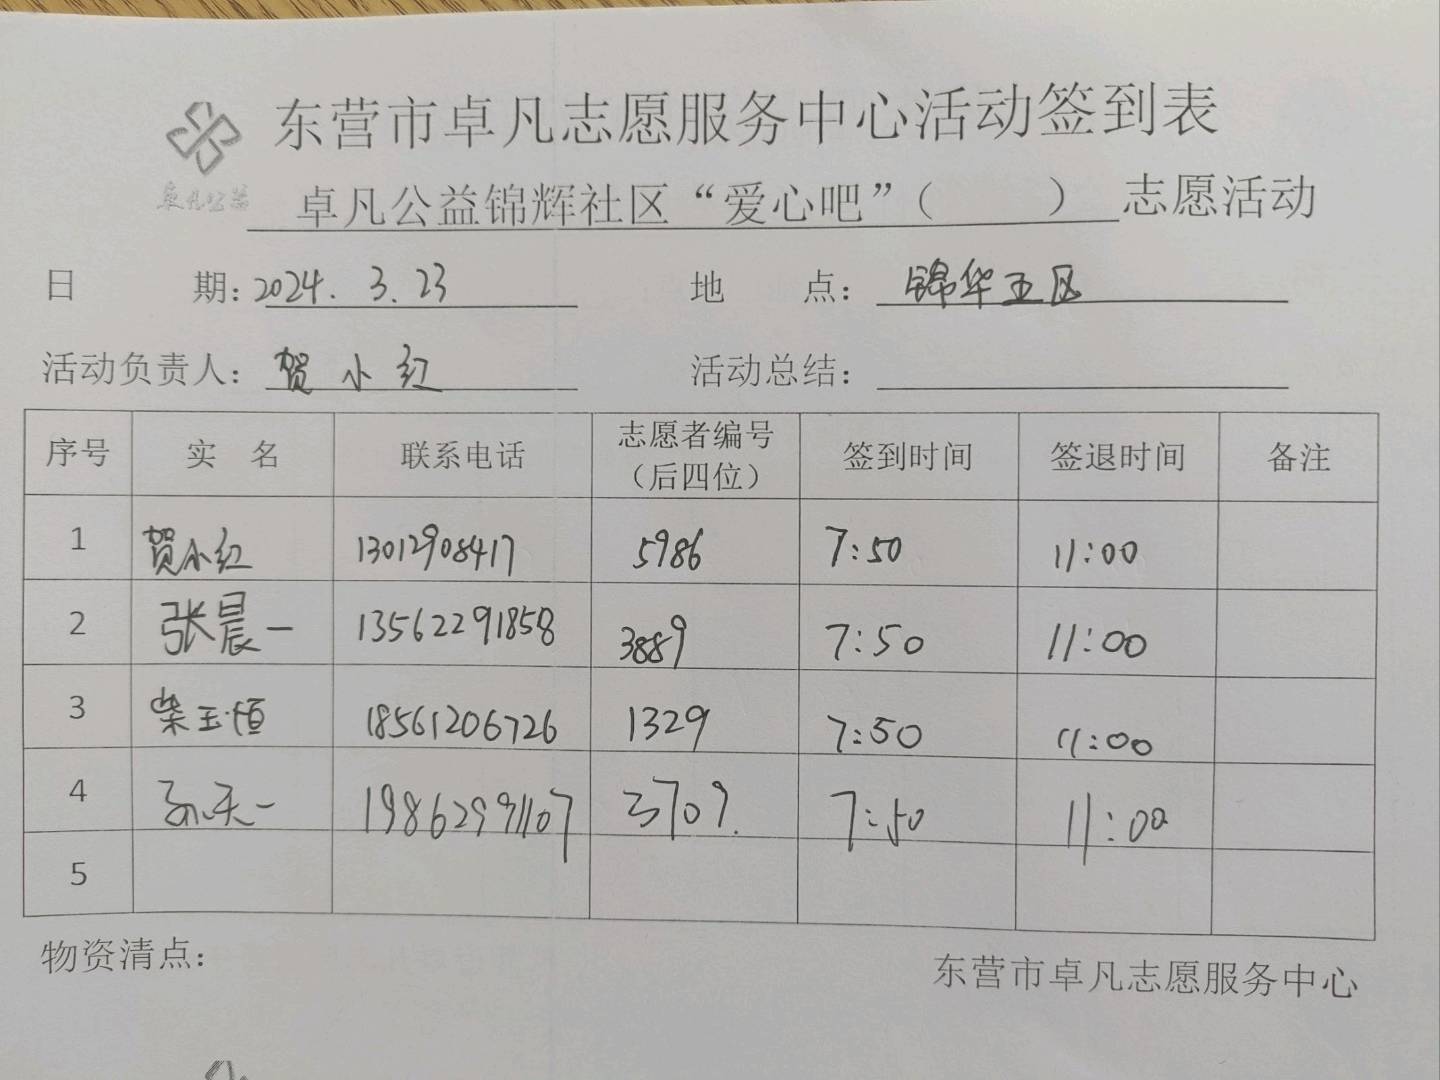 东营市卓凡志愿服务中心活动签到表
卓凡公益
卓凡公益锦辉社区“爱心吧”（ ） 志愿活动
日 期：2024.3.23 地 点：锦华五区
活动负责人：贺小红 活动总结：
序号 实 名 联系电话 志愿者编号（后四位） 签到时间 签退时间 备注
1 贺小红 13012908417 5986 7:50 11:00
2 张晨一 13562291858 3889 7:50 11:00
3 柴玉恒 18561206726 1329 7:50 11:00
4 孙天一 19862991107 3709. 7:50 11:00
5
物资清点：
东营市卓凡志愿服务中心